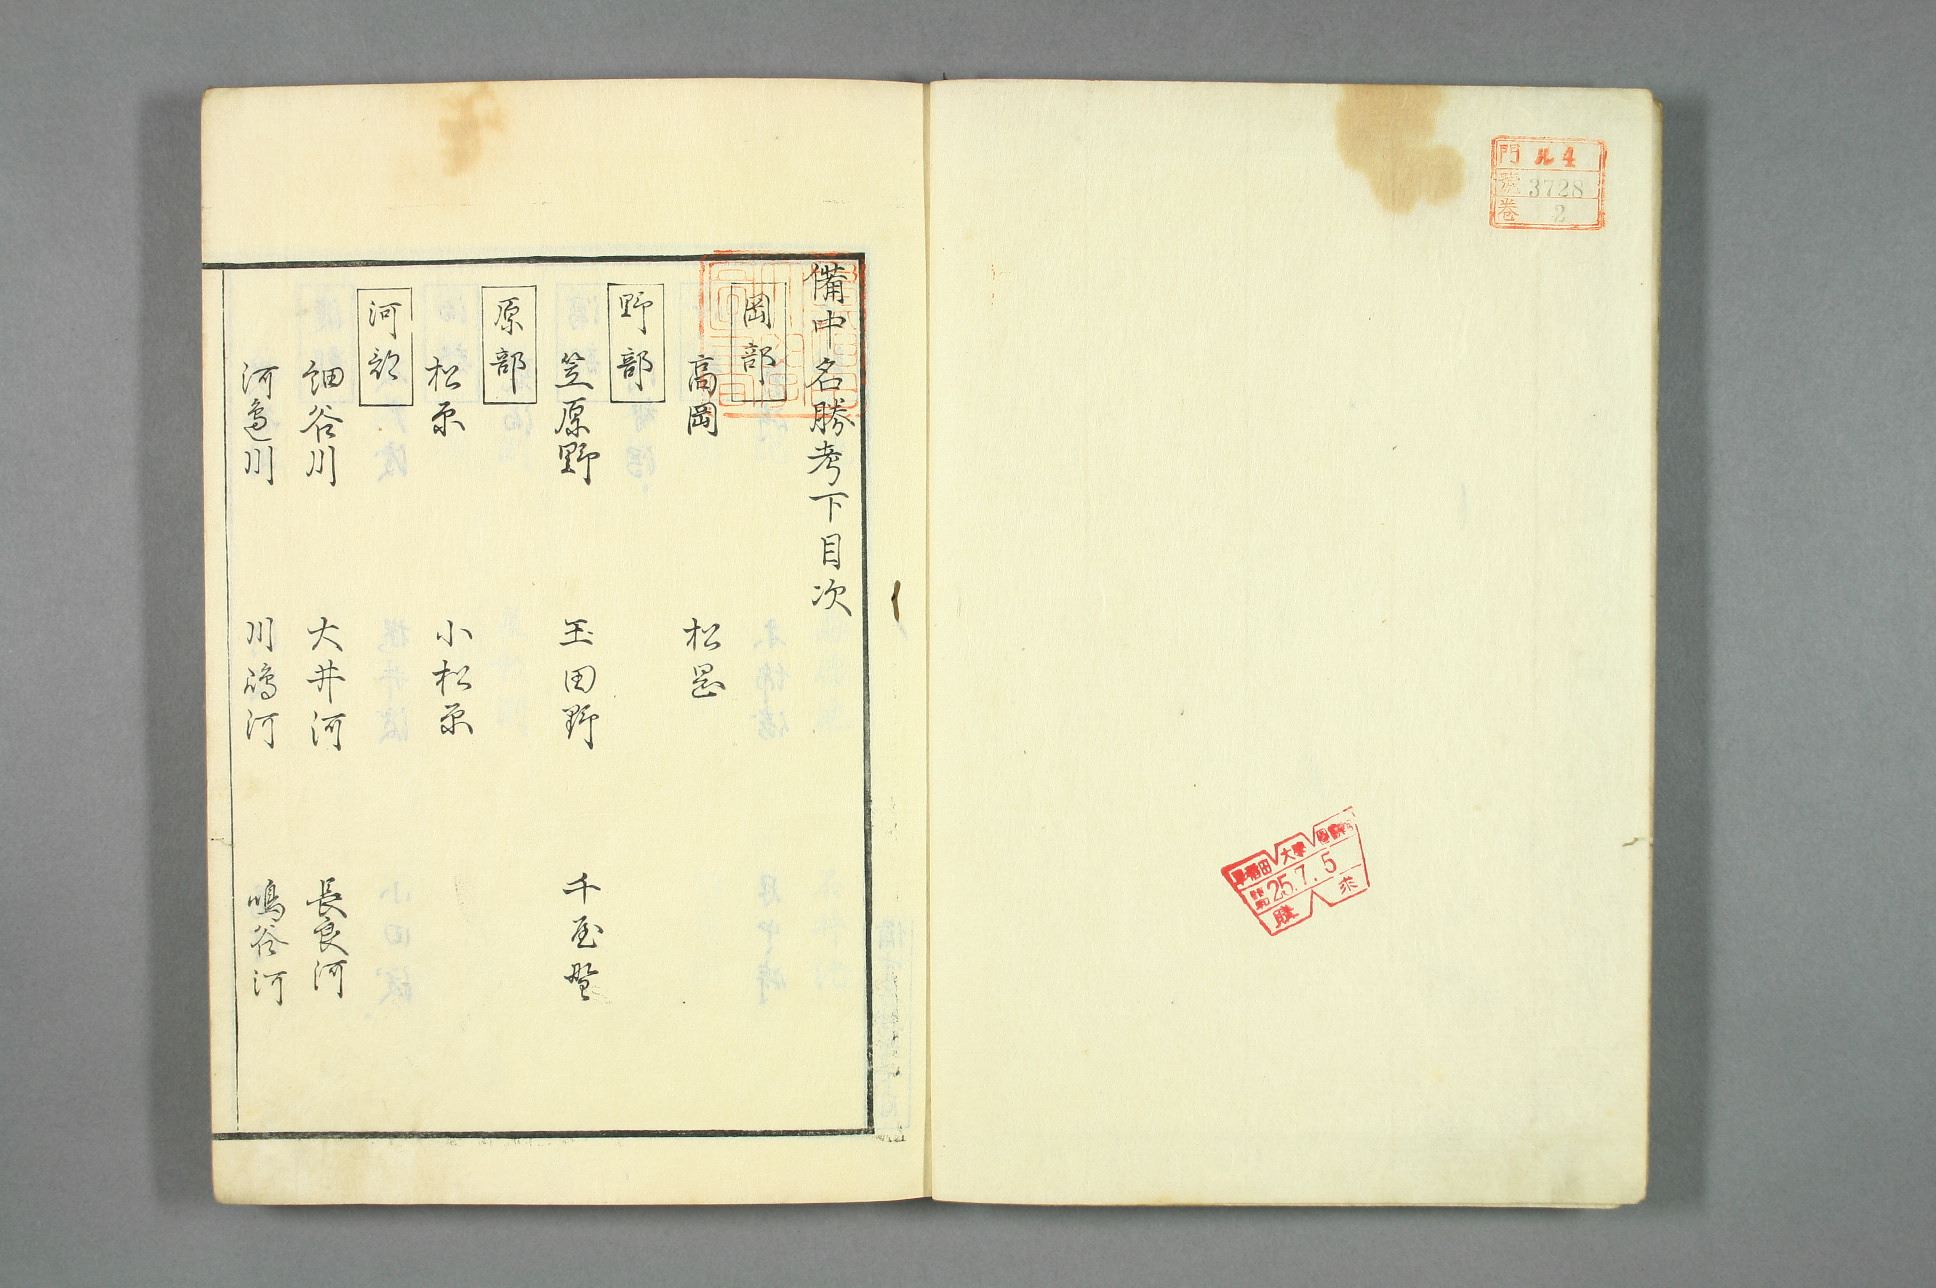 門 ル4
號 3728
卷 2
早稲田大學圖書
25.7.5
購求
備中名勝考下目次
岡部
高岡 松岡
野部
笠原野 玉田野 千屋野
原部
松原 小松原
河部
細谷川 大井河 長良河
河邉川 川嶋河 鳴谷河